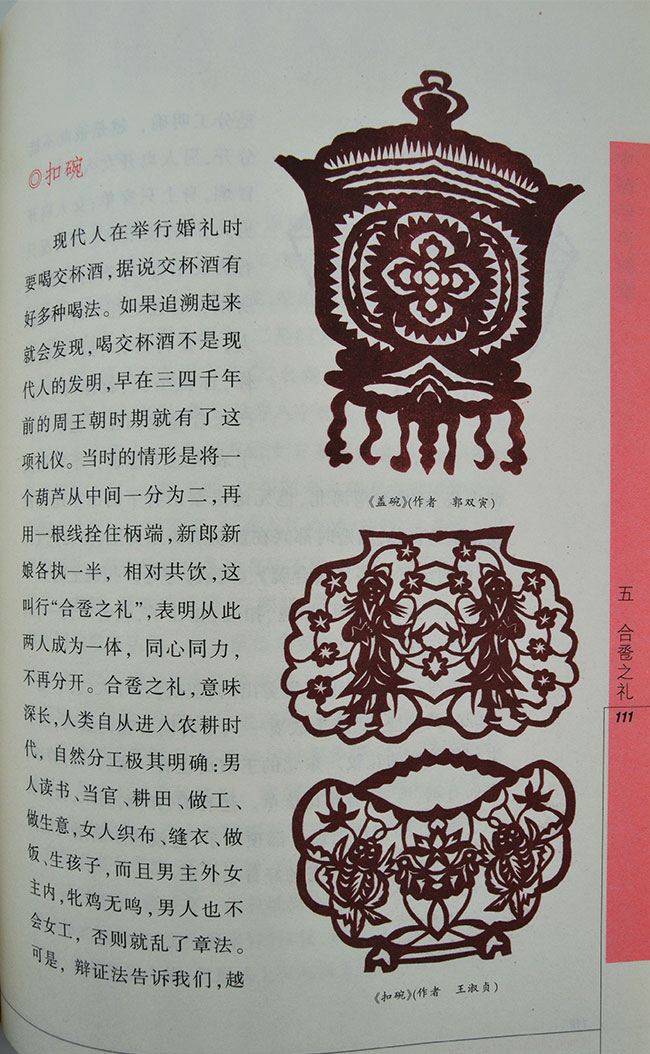 ◎扣碗
现代人在举行婚礼时
要喝交杯酒，据说交杯酒有
好多种喝法。如果追溯起来
就会发现，喝交杯酒不是现
代人的发明，早在三四千年
前的周王朝时期就有了这
项礼仪。当时的情形是将一
个葫芦从中间一分为二，再
用一根线拴住柄端，新郎新
娘各执一半，相对共饮，这
叫行“合卺之礼”，表明从此
两人成为一体，同心同力，
不再分开。合卺之礼，意味
深长，人类自从进入农耕时
代，自然分工极其明确：男
人读书、当官、耕田、做工、
做生意，女人织布、缝衣、做
饭、生孩子，而且男主外女
主内，牝鸡无鸣，男人也不
会女工，否则就乱了章法。
可是，辩证法告诉我们，越
《盖碗》（作者 郭双寅）
《扣碗》（作者 王淑贞）
五 合卺之礼
111